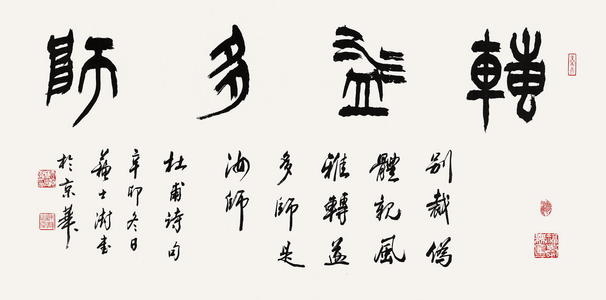 轉益多師
别裁偽
體親風
雅轉益
多師是
汝師
杜甫詩句
辛卯冬日
蘇士澍書
於京華